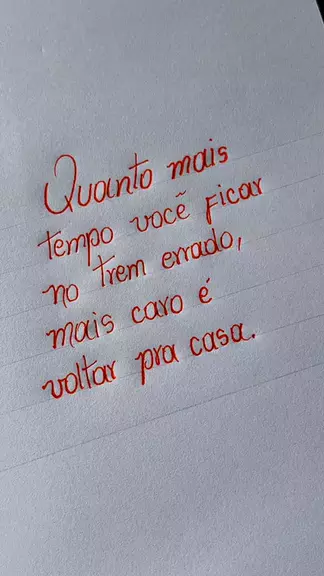 Quanto mais
tempo você ficar
no trem errado,
mais caro é
voltar pra casa.